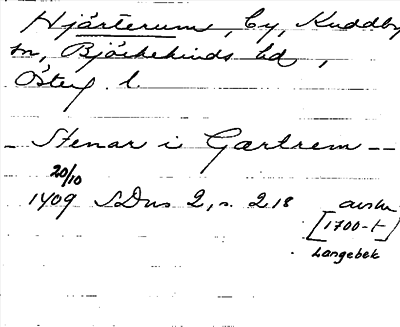 Hjärterum, by, Kuddby
sn, Björkekinds hd,
Österg. l.
_ Stenar i Gærtrem --
20/10
1409 SDns 2, s. 218 avskr
[1700-t]
Langebek